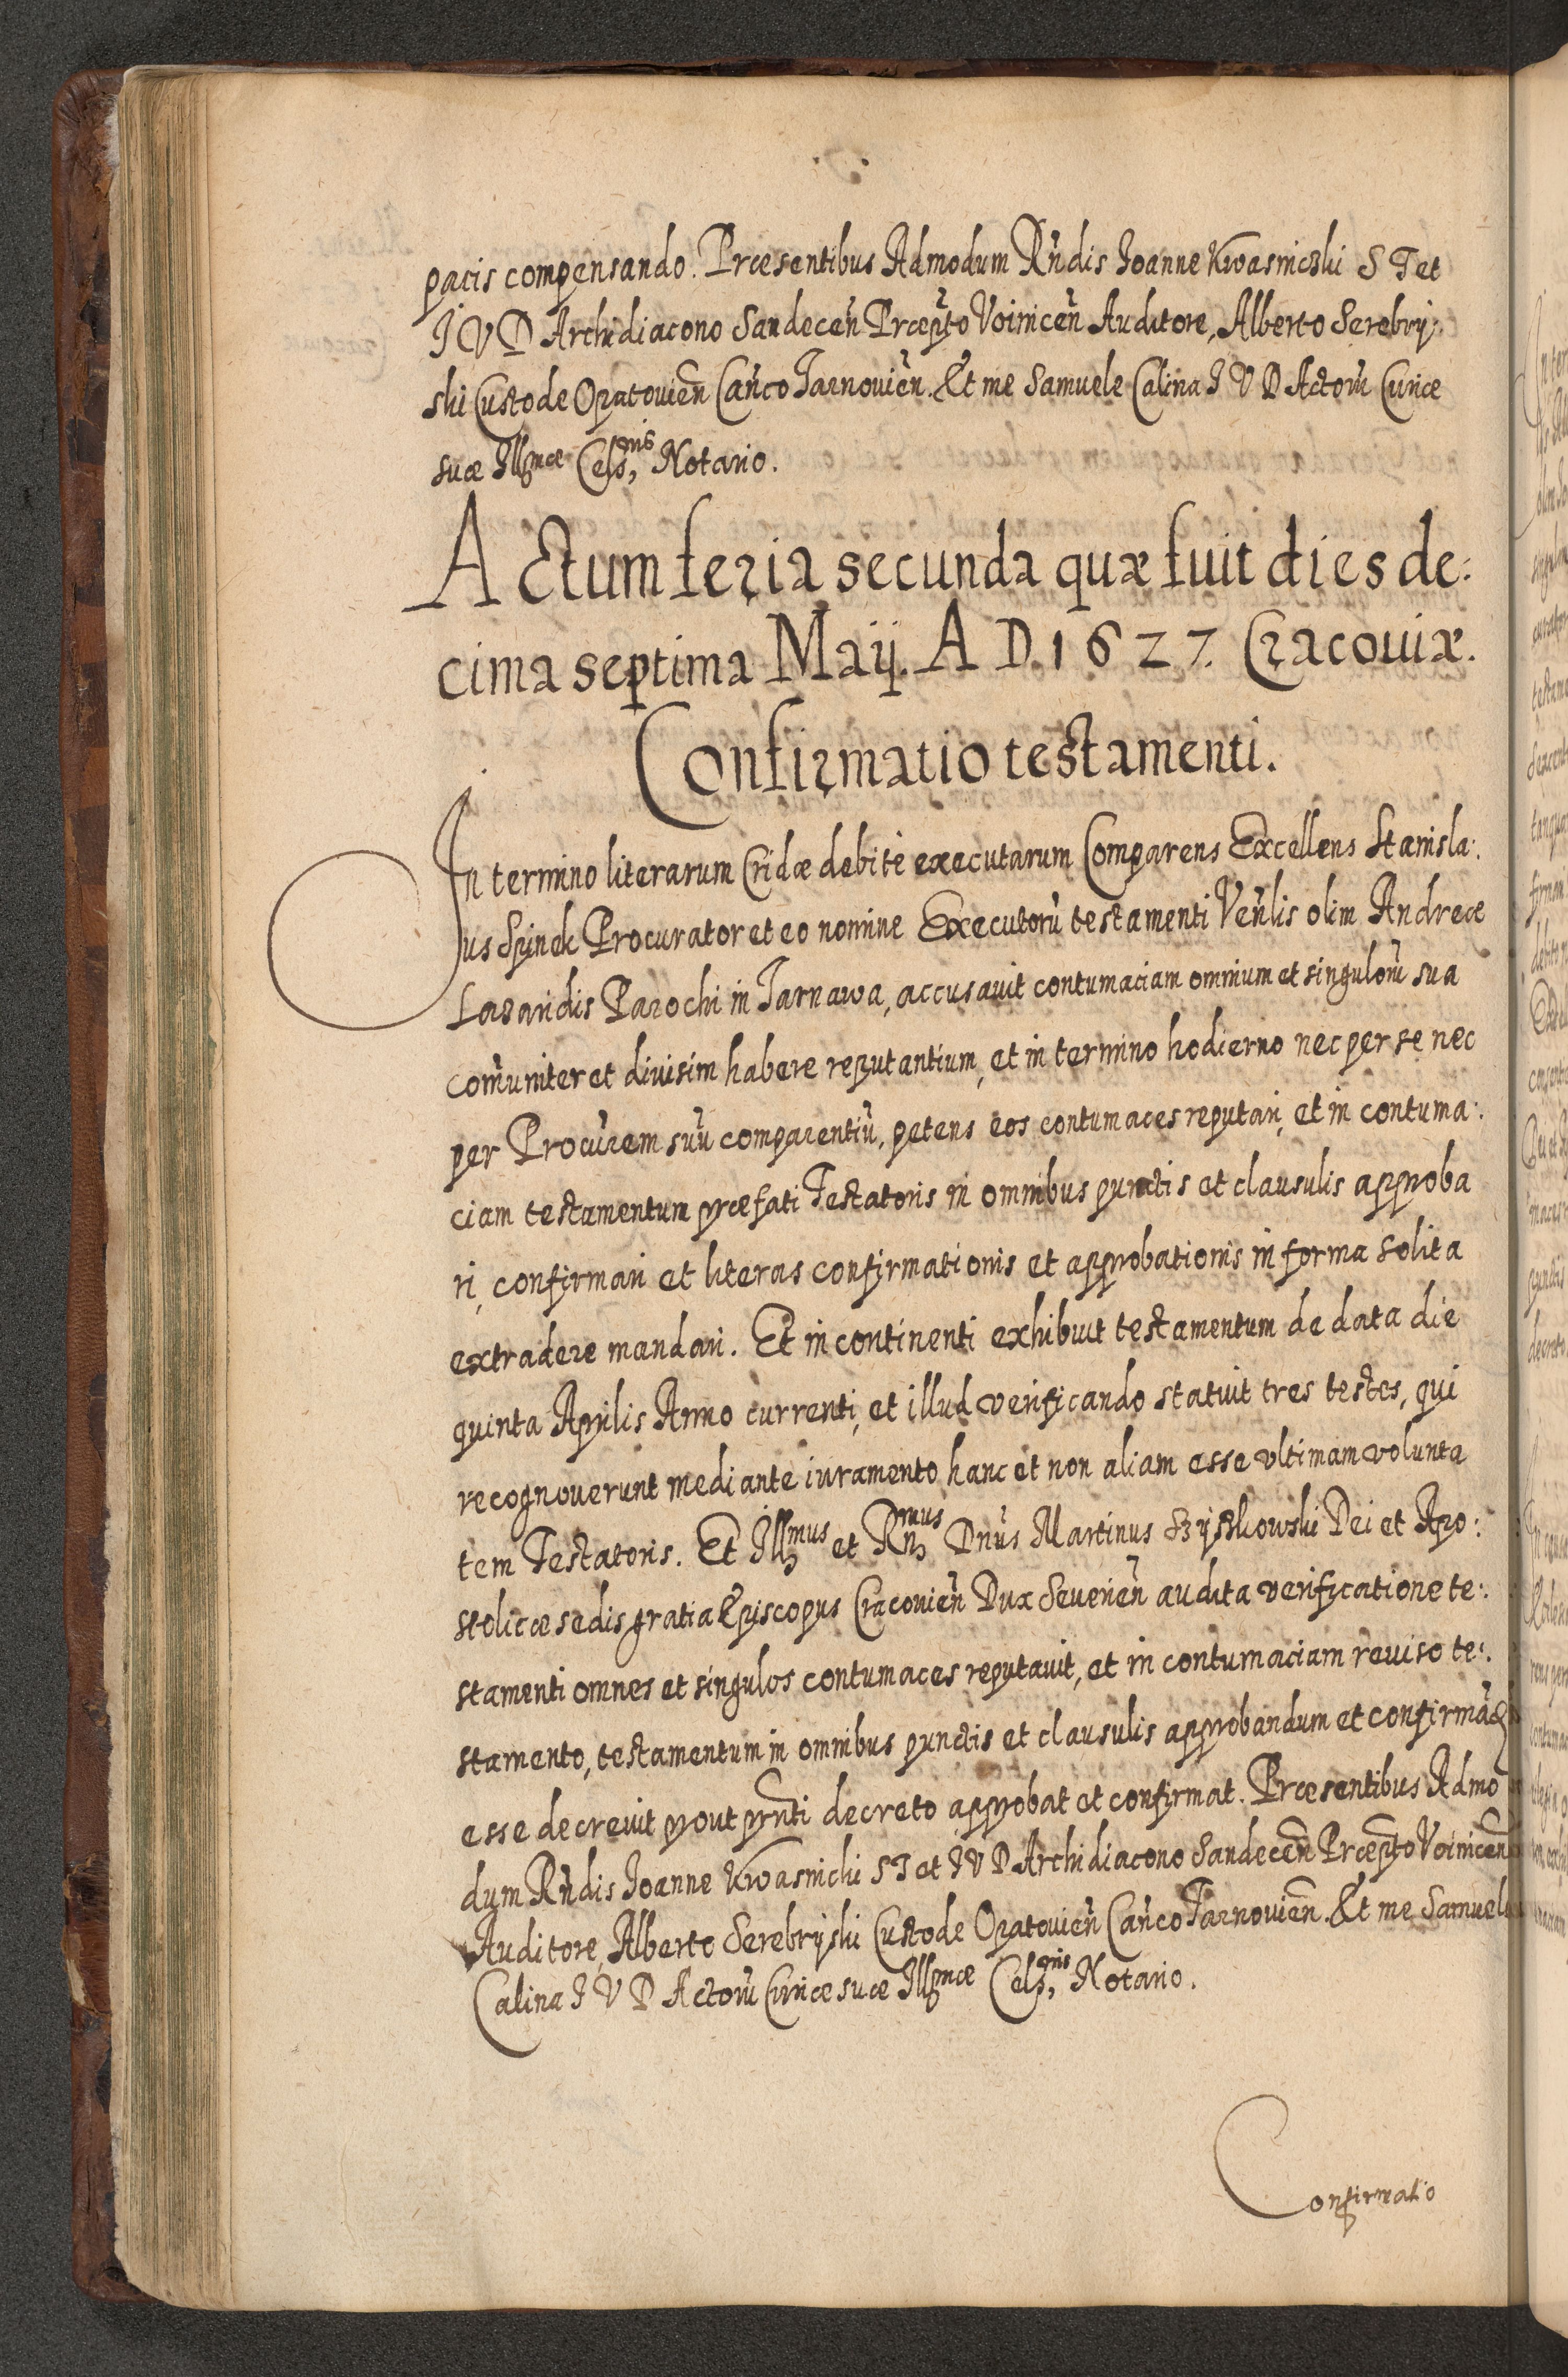 pacis compensando. Præsentibus Admodum Rñdis Joanne Kwasniczki S T et
J V D Archidiacono Sandeceñ Præpto Voiniceñ Auditore, Alberto Serebrÿ:
ski Custode Opatovieñ Cañco Tarnovień. Et me Samuele Calina J V D Actorũ Curiæ
suæ Illmæ Cels,nis Notario.
Actum feria secunda quæ fuit dies de:
cima septima Maÿ. A D. 1627. Cracoviæ.
Confirmatio testamenti.
In termino literarum Cridæ debitè executarum Comparens Excellens Stanisla:
us Spinek Procurator et eo nomine Executorũ testamenti Veñlis olim Andreæ
Lazaridis Parochi in Tarnawa, accusavit contumaciam omnium et singulorũ sua
com̃uniter et divisim habere reputantium, et in termino hodierno nec per se nec
per Procũrem suũ comparentiũ, petens eos contumaces reputari, et in contuma:
ciam testamentum præfati Testatoris in omnibus punctis et clausulis approba
ri, confirmari et literas confirmationis et approbationis in forma solita
extradere mandari. Et in continenti exhibuit testamentum de data die
quinta Aprilis Anno currenti, et illud verificando statuit tres testes, qui
recognoverunt mediante iuramento hanc et non aliam esse ultimam volunta
tem Testatoris. Et Illmus et Rñmus Dñus Martinus Szÿszkowski Dei et Apo:
stolicæ sedis gratia Episcopus Cracovieñ Dux Severieñ audita verificatione te:
stamenti omnes et singulos contumaces reputavit, et in contumaciam reviso te:
stamento, testamentum in omnibus punctis et clausulis approbandum et confirmãd
esse decrevit prout prñti decreto approbat et confirmat. Præsentibus Admo
dum Rñdis Joanne Kwasnicki S T et J V D Archidiacono Sandeceñ Præpto Voiniceñ
Auditore, Alberto Serebrÿski Custode Opatovieñ Cañco Tarnovieñ. Et me Samuele
Calina J V D Actorũ Curiæ suæ Illmæ Cels,nis Notario.
Confirmatio